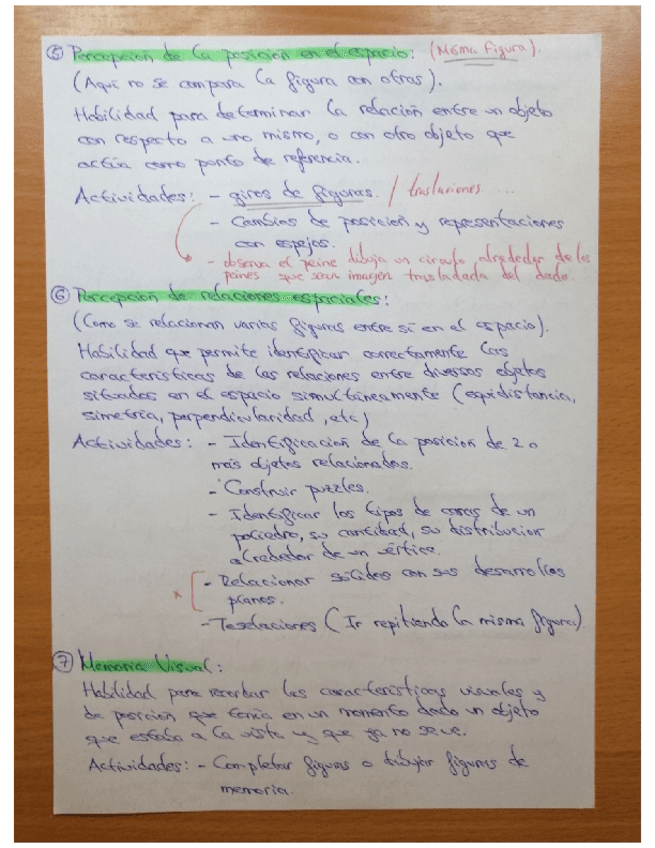 ⑤ Percepción de la posición en el espacio: (Misma Figura).
(Aquí no se compara la figura con otras).
Habilidad para determinar la relación entre un objeto
con respecto a uno mismo, o con otro objeto que
actúa como punto de referencia.
Actividades: - giros de figuras. / traslaciones ...
- Cambios de posición y representaciones
con espejos.
- observa el peine dibuja un círculo alrededor de los
peines que sean imagen trasladada del dado.
⑥ Percepción de relaciones espaciales:
(Como se relacionan varias figuras entre sí en el espacio).
Habilidad que permite identificar correctamente las
características de las relaciones entre diversos objetos
situados en el espacio simultáneamente (equidistancia,
simetría, perpendicularidad, etc)
Actividades: - Identificación de la posición de 2 o
más objetos relacionados.
- Construir puzzles.
- Identificar los tipos de caras de un
poliedro, su cantidad, su distribución
alrededor de un vértice.
x [ - Relacionar sólidos con sus desarrollos
planos.
- Teselaciones (Ir repitiendo la misma figura).
⑦ Memoria Visual:
Habilidad para recordar las características visuales y
de posición que tenía en un momento dado un objeto
que estaba a la vista y que ya no se ve.
Actividades: - Completar figuras o dibujar figuras de
memoria.